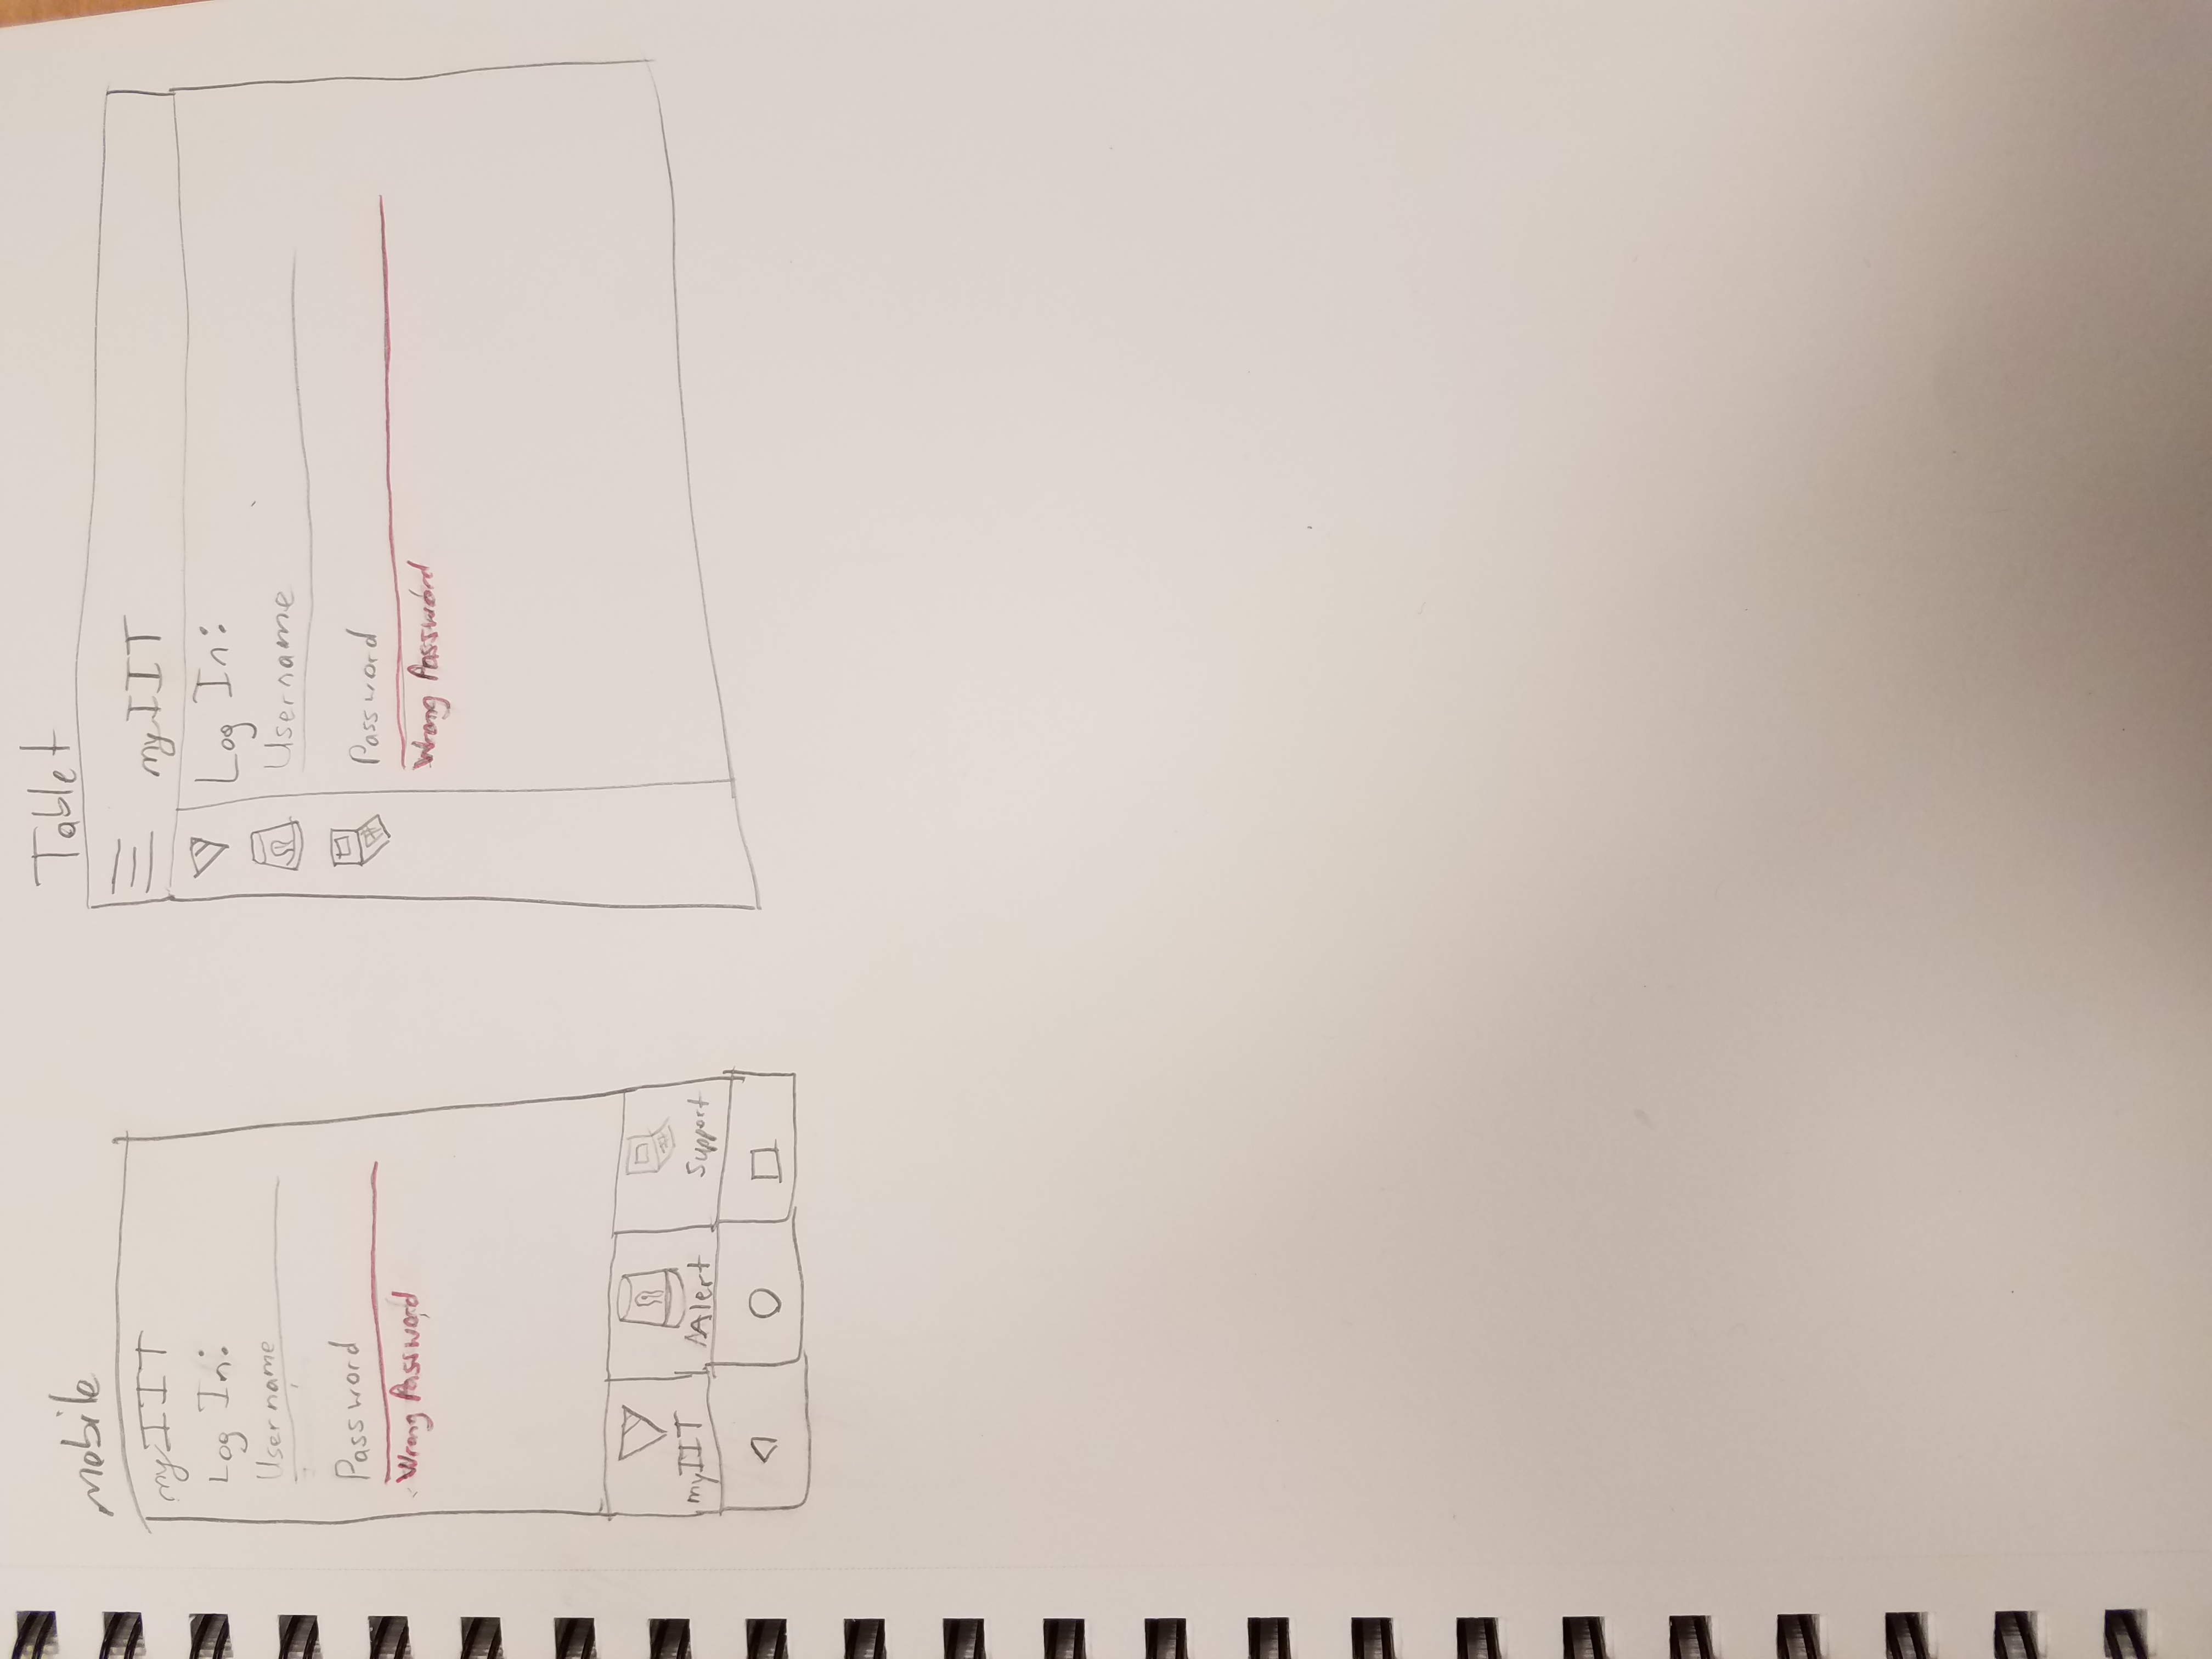 mobile
myIIT
Log In:
Username
Password
Wrong Password
myIIT
Alert
Support
Tablet
myIIT
Log In:
Username
Password
Wrong Password